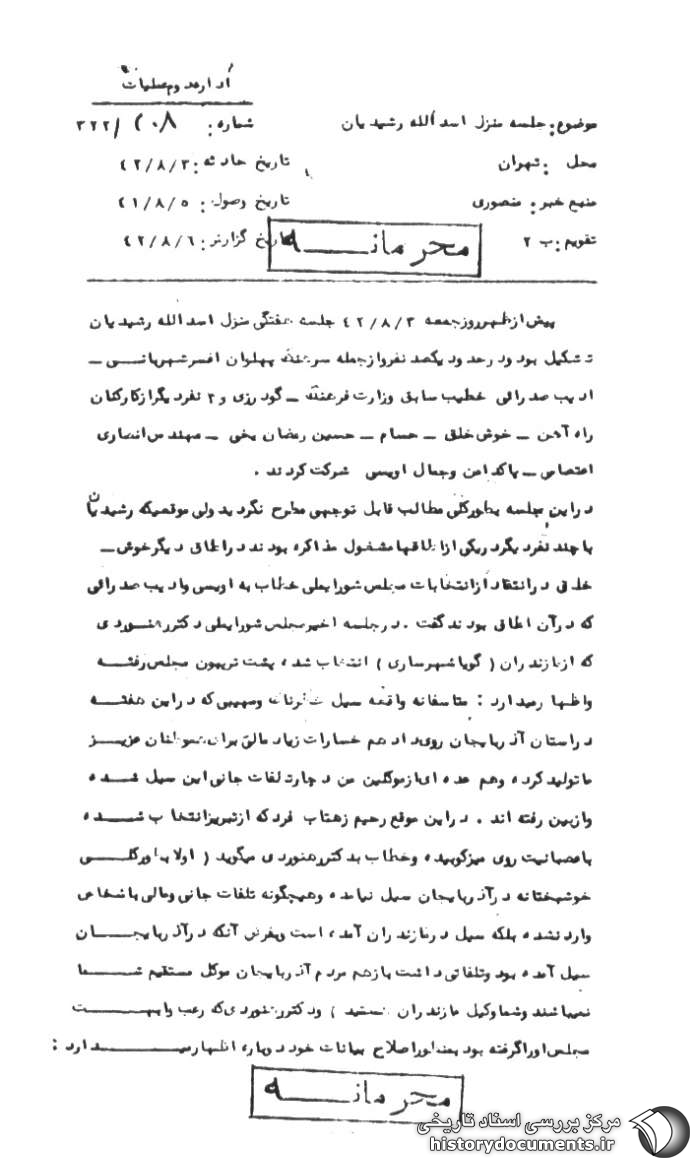 اداره دوم عملیات
موضوع: جلسه منزل اسدالله رشیدیان شماره: ۳۲۲/۶۰۸
محل: تهران تاریخ حادثه: ۴۲/۸/۳
منبع خبر: منصوری تاریخ وصول: ۴۱/۸/۵
تقویم: ب ۲ تاریخ گزارش: ۴۲/۸/۶
محرمانه
پیش از ظهر روز جمعه ۴۲/۸/۳ جلسه هفتگی منزل اسدالله رشیدیان
تشکیل بود و در حدود یکصد نفر و از جمله سرهنگ پهلوان افسر شهربانی –
ادیب صدرائی خطیب سابق وزارت فرهنگ – گودرزی و ۲ نفر دیگر از کارکنان
راه آهن – خوش خلق – حسام – حسین رمضان یخی – مهندس انصاری
اعتصامی – پاکدامن وجمال اویسی شرکت کردند .
در این جلسه بطور کلی مطالب قابل توجهی مطرح نگردید ولی موقعیکه رشیدیان
با چند نفر دیگر در یکی از اطاقها مشغول مذاکره بودند در اطاق دیگر خوش –
خلق در انتقاد از انتخابات مجلس شورایملی خطاب به اویسی و ادیب صدرائی
که در آن اطاق بودند گفت . در جلسه اخیر مجلس شورایملی دکتر رهنوردی
که از مازندران ( گویا شهر ساری ) انتخاب شده ، پشت تریبون مجلس رفته
و اظهار میدارد : متاسفانه واقعه سیل خطرناک ومهیبی که در این هفته
در استان آذربایجان رویداد هم خسارات زیاد مالی برای هموطنان عزیز
ما تولید کرده وهم عده ای از موکلین من دچار تلفات جانی این سیل شده
و از بین رفته اند . در این موقع رحیم زهتاب فرد که از تبریز انتخاب شده
با عصبانیت روی میز کوبیده وخطاب بدکتر رهنوردی میگوید ( اولا بطور کلی
خوشبختانه در آذربایجان سیل نیامده و هیچگونه تلفات جانی ومالی با شخاصی
وارد نشده بلکه سیل در مازندران آمده ، است وبفرض آنکه در آذربایجان
سیل آمده بود وتلفاتی داشت بازهم مردم آذربایجان موکل مستقیم شما
نمیباشند وشما وکیل مازندران هستید ) ودکتر رهنوردی که رعب وابهت
مجلس اورا گرفته بود بمنظور اصلاح بیانات خود دوباره اظهار میدارد :
محرمانه
مرکز بررسی اسناد تاریخی
historydocuments.ir